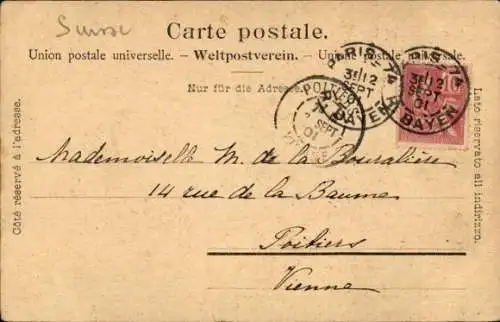 Suisse
Carte postale.
Union postale universelle. – Weltpostverein. – Unione postale universale.
Nur für die Adresse.
PARIS-74
3E/12
SEPT
01
R. BAYEN
PARIS-74
3E/12
SEPT
01
R. BAYEN
POITIERS
SEPT
01
VIENNE
Mademoiselle M. de la Bouralière
14 rue de la Baume
Poitiers
Vienne
Côté réservé à l'adresse.
Lato riservato all indirizzo.